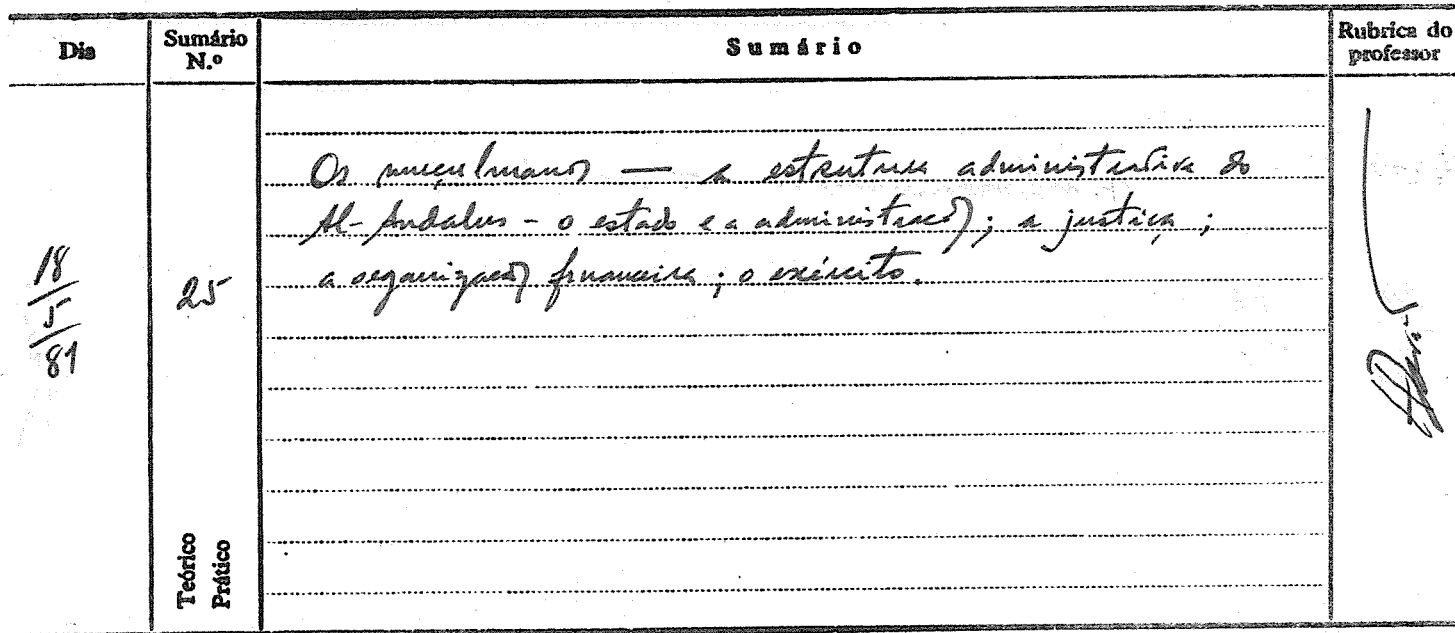 Dia
Sumário N.º
Sumário
Rubrica do professor
18/5/81
25
Os muçulmanos — a estrutura administrativa do
Al-Andalus - o estado e a administração; a justiça;
a organização financeira; o exército.
Teórico
Prático